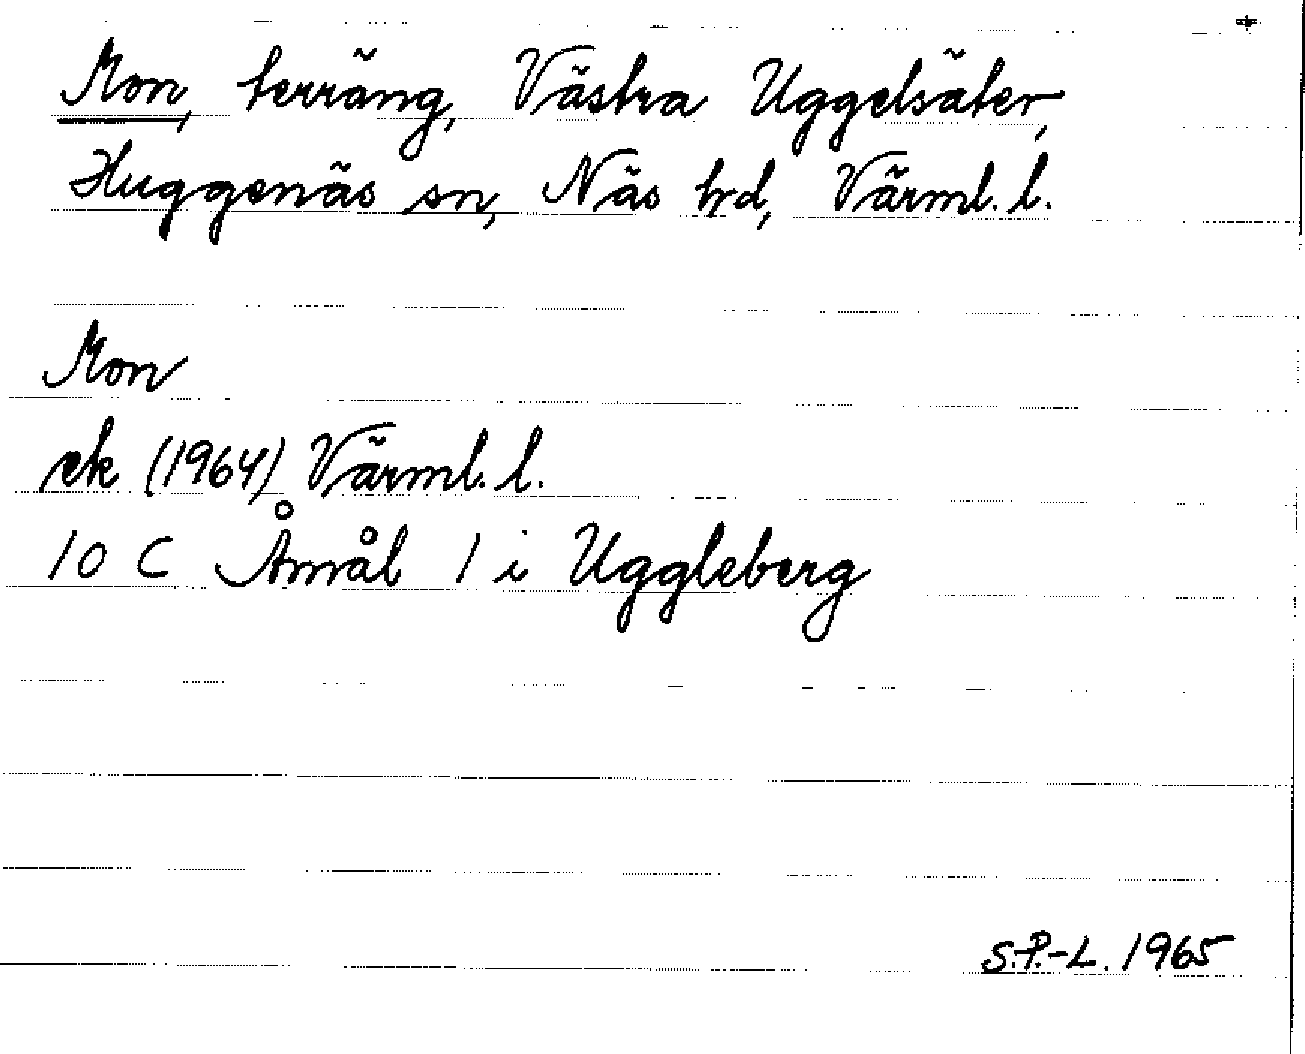 Mon, terräng, Västra Uggelsäter,
Huggenäs sn, Näs hrd, Värml. l.
Mon
ek (1964) Värml. l.
10 C Åmål 1 i Uggleberg
S.P.-L. 1965